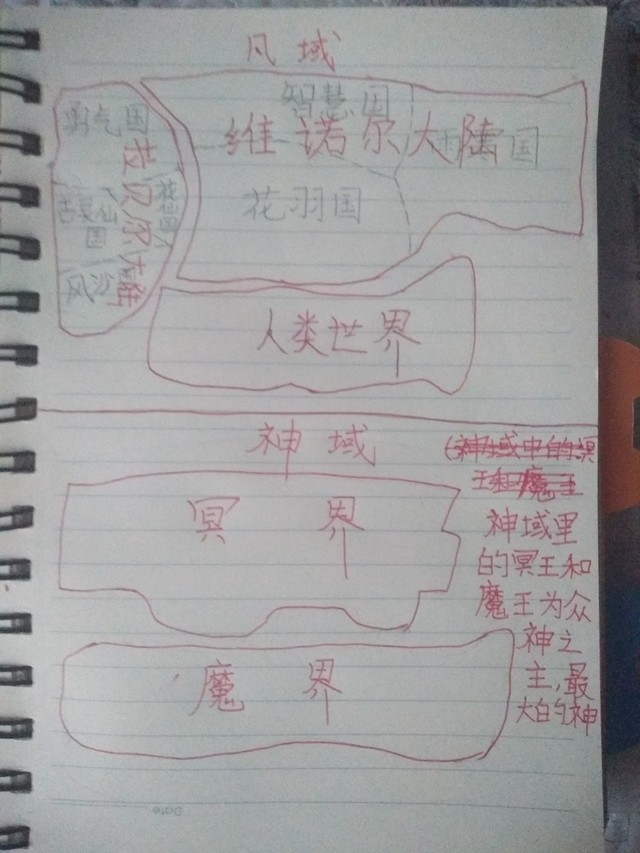 凡域
勇气国
智慧国
维诺尔大陆
国
花羽国
拉贝尔大陆
花仙国
古灵仙国
风沙国
人类世界
神域
冥界
魔界
(神域中的冥
王和魔王
神域里
的冥王和
魔王为众
神之
主,最
大的神
Date